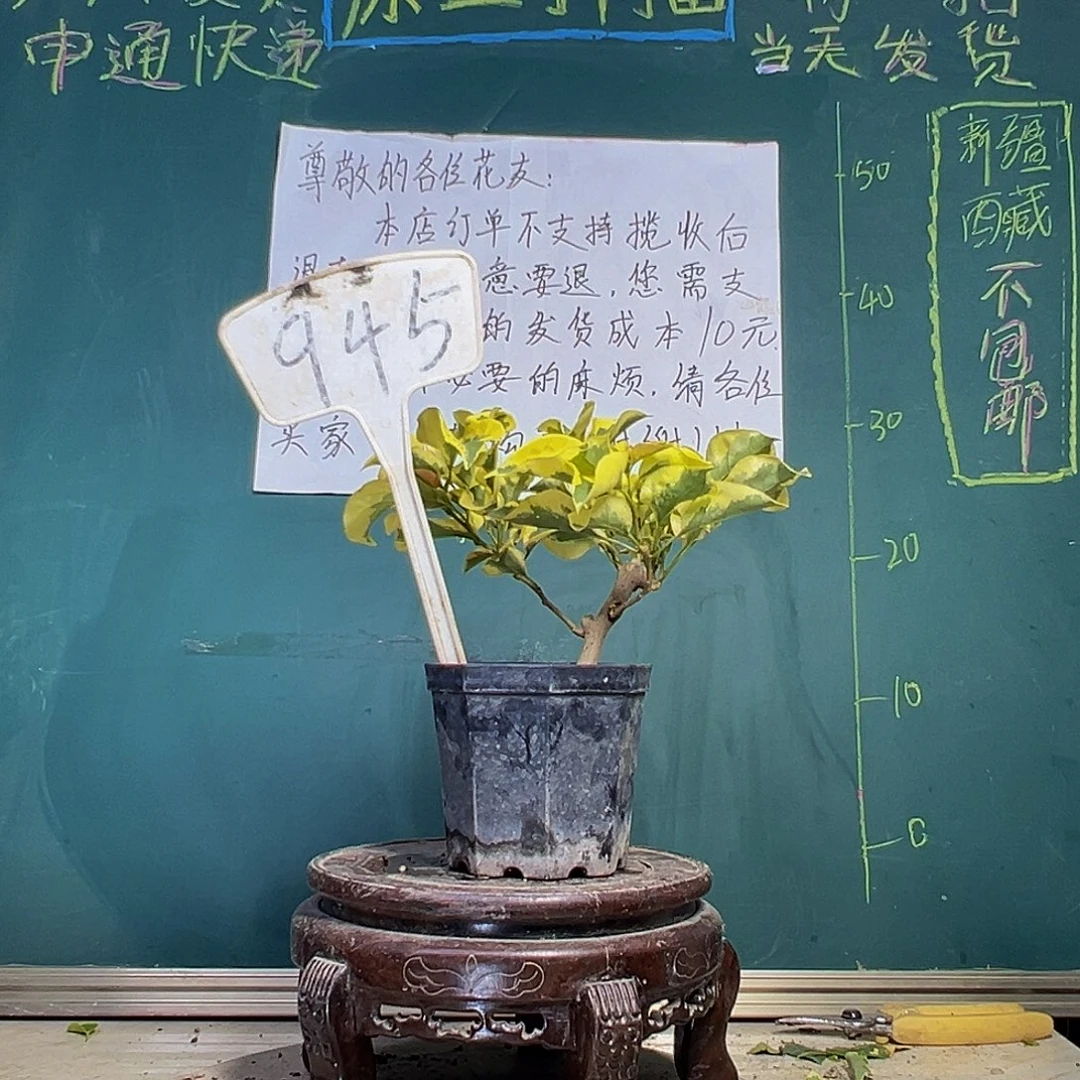 申通快递
当天发货
尊敬的各位花友:
本店订单不支持揽收后
意要退,您需支
的发货成本10元.
必要的麻烦.请各位
买家
945
50
40
30
20
10
0
新疆
西藏
不
包
邮